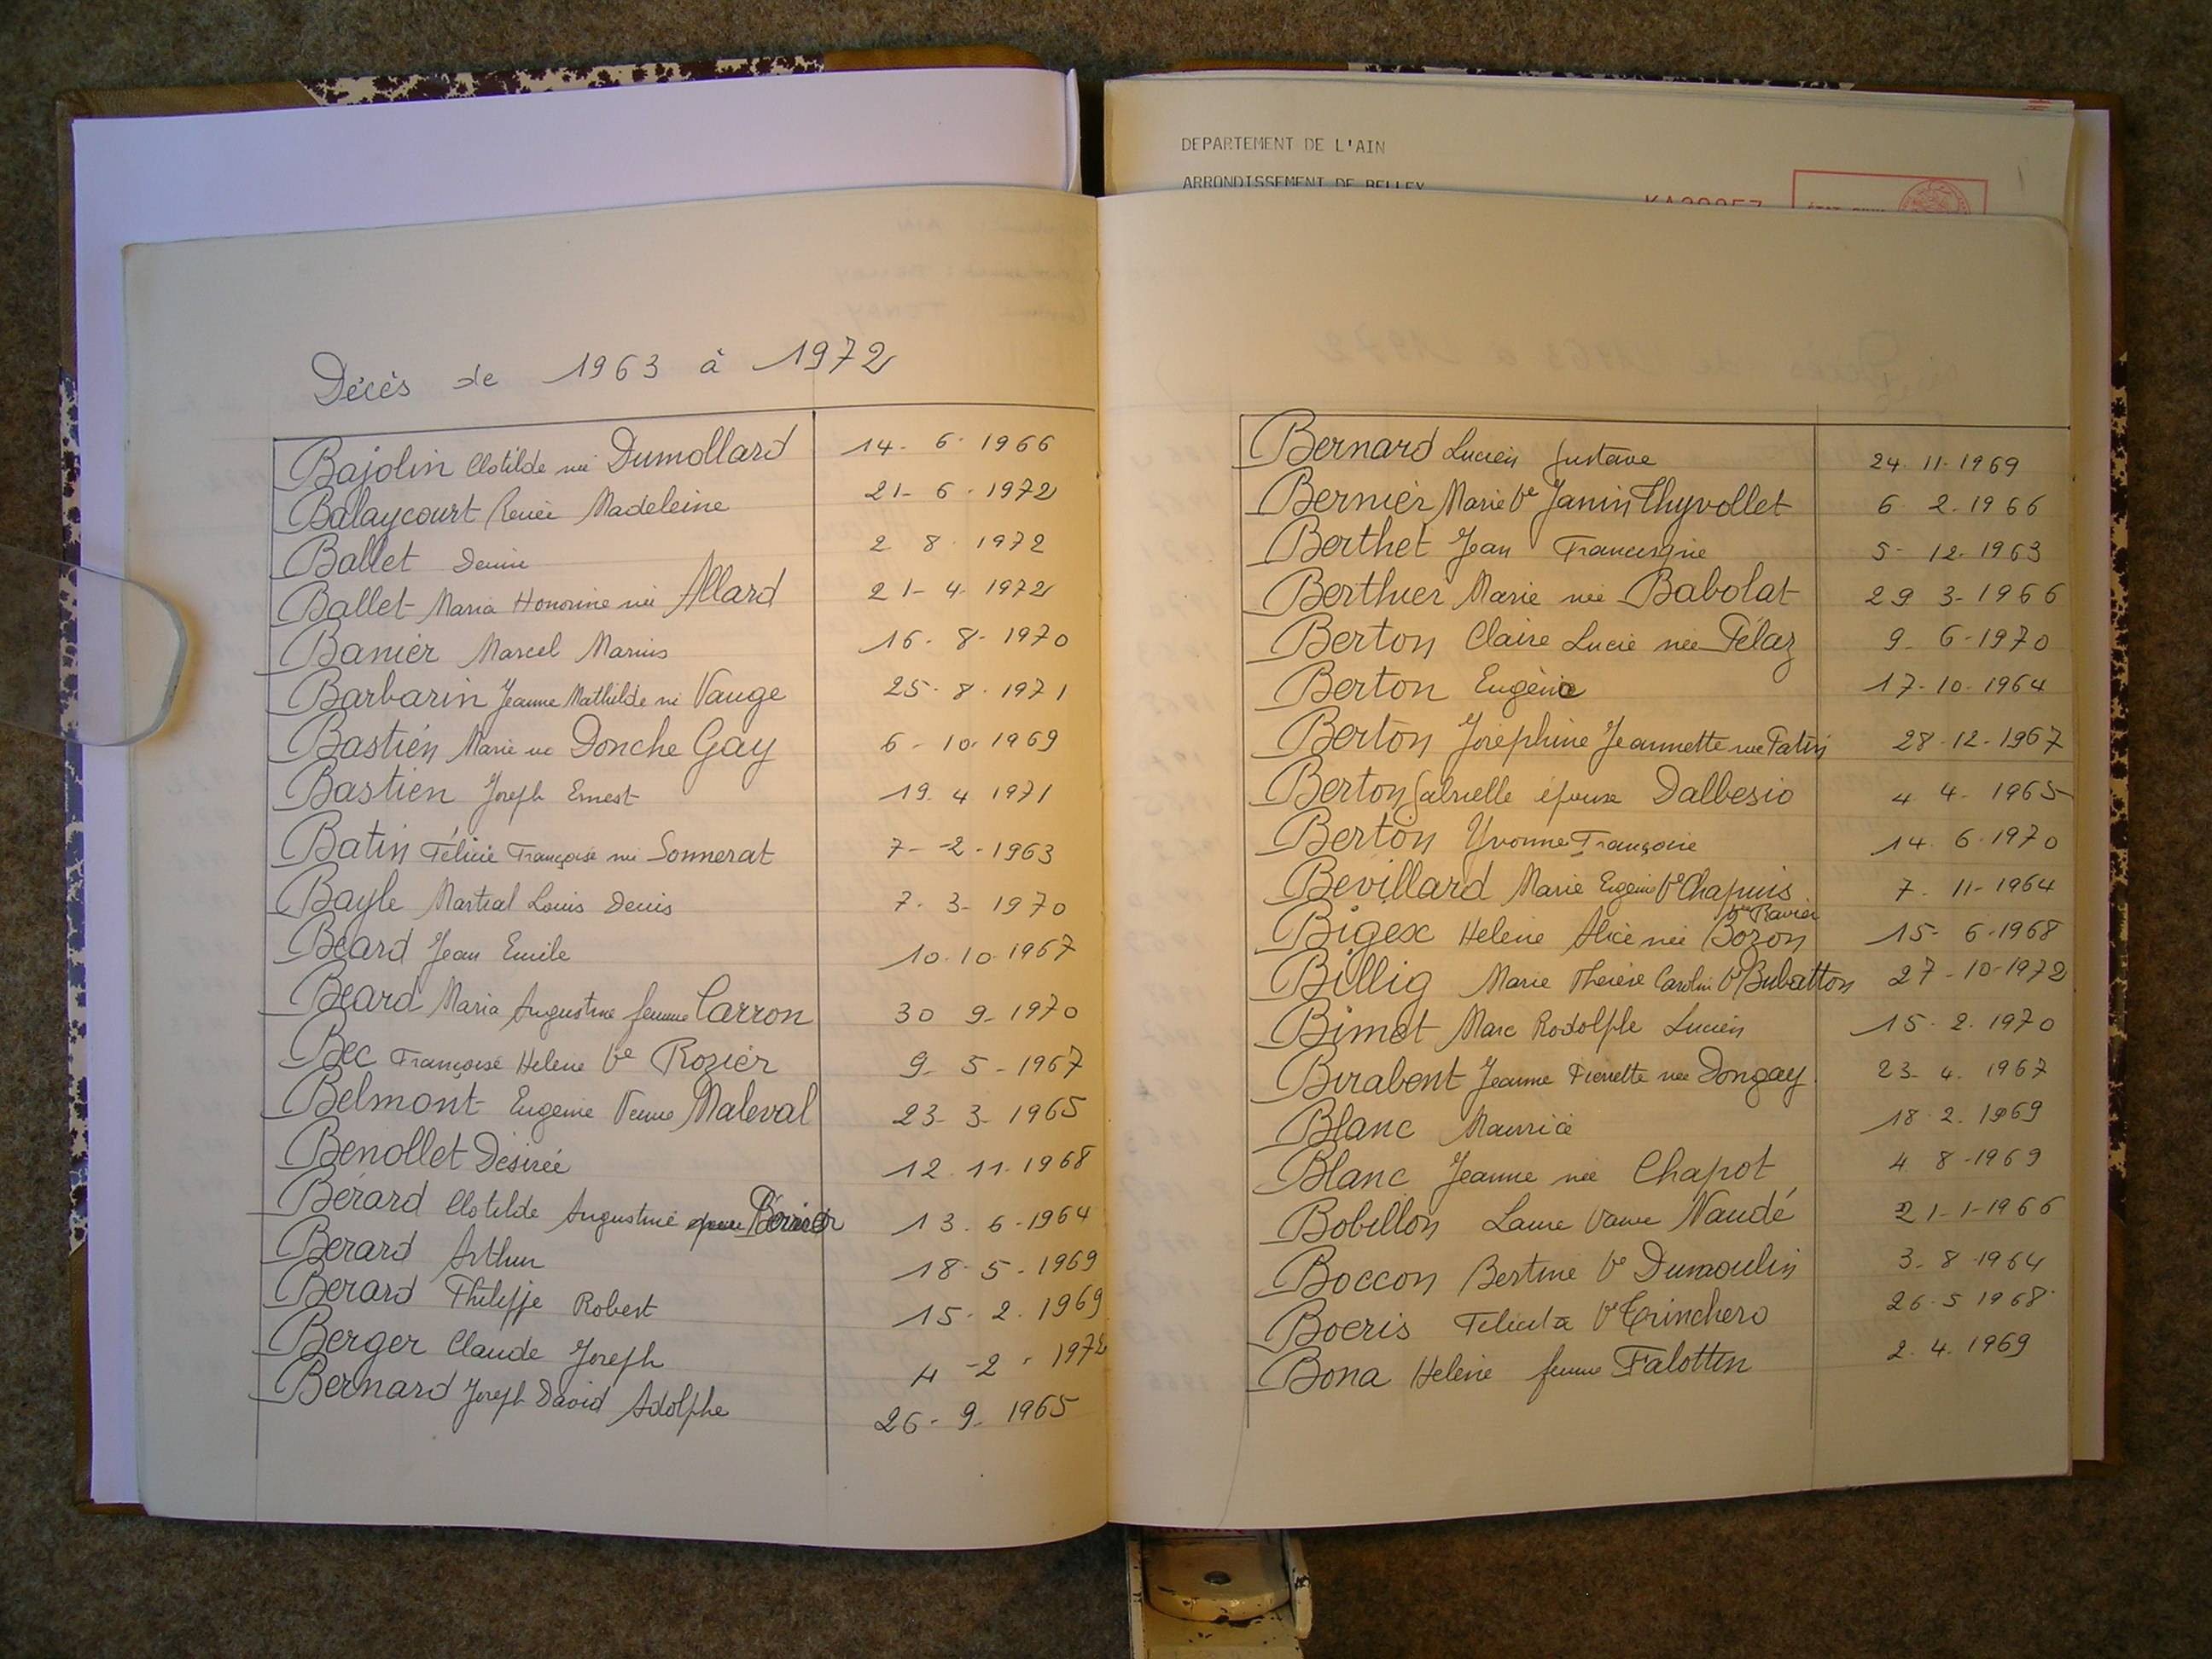 DEPARTEMENT DE L'AIN
ARRONDISSEMENT DE BELLEY
Décès de 1963 à 1972
Bajolin Clotilde née Dumollard 14- 6- 1966
Balaycourt Renée Madeleine 21- 6- 1972
Ballet Denise 2 8 1972
Ballet Maria Honorine née Allard 21- 4- 1972
Banier Marcel Marius 16- 8- 1970
Barbarin Jeanne Mathilde née Vauge 25- 8- 1971
Bastien Marie née Donche Gay 6- 10- 1969
Bastien Joseph Ernest 19- 4 1971
Batin Félicie Françoise née Sonnerat 7- 2- 1963
Bayle Martial Louis Denis 7- 3- 1970
Béard Jean Emile 10.10.1967
Béard Maria Augustine femme Carron 30 9- 1970
Bec Françoise Helene Ve Rozier 9- 5- 1967
Belmont Eugenie Veuve Maleval 23- 3- 1965
Benollet Désirée 12.11.1968
Bérard Clotilde Augustine 13. 6-1964
Berard Arthur 18- 5- 1969
Berard Philippe Robert 15- 2. 1969
Berger Claude Joseph 4 -2 - 1972
Bernard Joseph David Adolphe 26- 9- 1965
Bernard Lucien Gustave 24. 11- 1969
Bernier Marie Ve Janin Thyvollet 6 2. 1966
Berthet Jean Francisque 5- 12- 1963
Berthier Marie née Babolat 29 3- 1966
Berton Claire Lucie née Pélaz 9- 6-1970
Berton Eugène 17- 10- 1964
Berton Joséphine Jeannette née Patin 28-12-1967
Berton Gabrielle épouse Dalbesio 4 4- 1965
Berton Yvonne Françoise 14. 6-1970
Bevillard Marie Eugenie Ve Chapuis 7- 11- 1964
Bigex Helene Alice née Bozon Ve Ravier 15- 6-1968
Billig Marie Thérèse Caroline Ve Bubatton 27-10-1972
Bimet Marc Rodolphe Lucien 15- 2. 1970
Birabent Jeanne Pierrette née Dongay 23- 4. 1967
Blanc Maurice 18 2. 1969
Blanc Jeanne née Chapot 4 8-1969
Bobillon Laure Veuve Naudé 21-1-1966
Boccon Bertine Ve Dumoulin 3- 8-1964
Boeris Felicita Ve Trinchero 26-5 1968
Bona Helène femme Falottin 2. 4. 1969